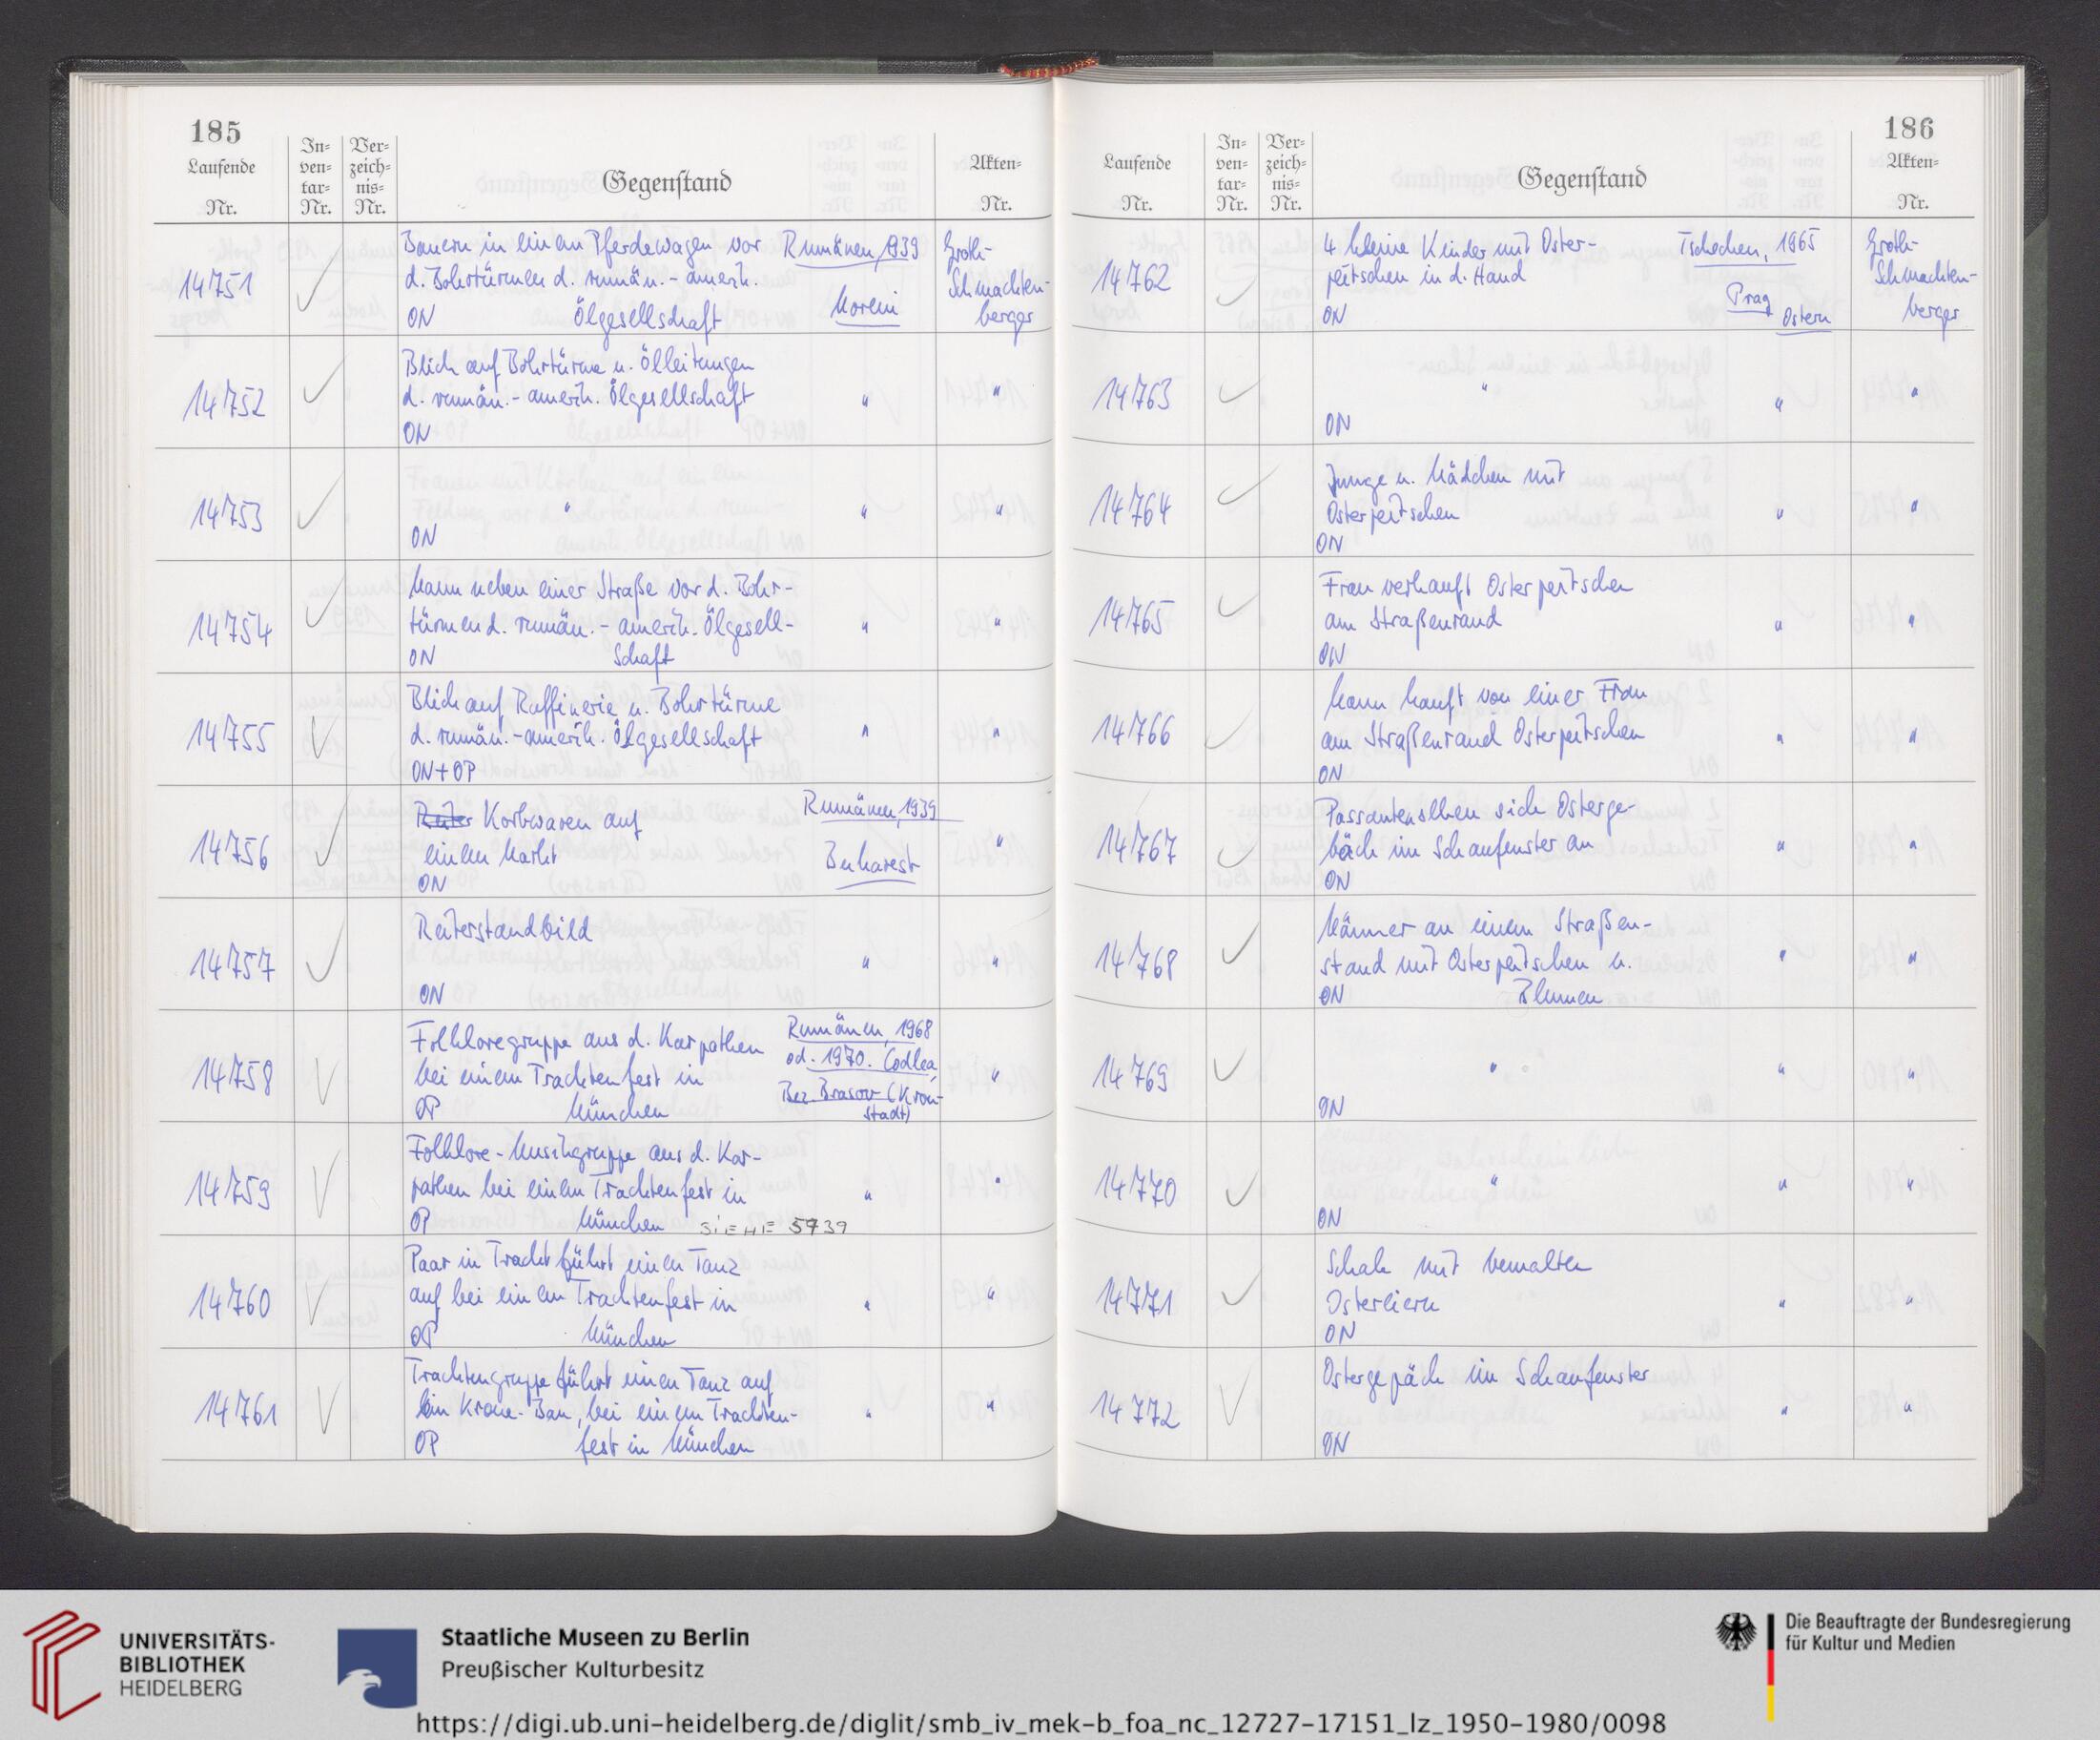 185
Laufende Nr.
In-ven-tar-Nr.
Ver-zeich-nis-Nr.
Gegenstand
Akten-Nr.
14751
Bauern in einem Pferdewagen vor
d. Bohrtürmen d. rumän.-amerik.
ON Ölgesellschaft
Rumänen, 1939
Moreni
Groth-
Schmachten-
berger
14752
Blick auf Bohrtürme u. Ölleitungen
d. rumän.-amerik. Ölgesellschaft
ON
"
"
14753
"
ON
"
"
14754
Mann neben einer Straße vor d. Bohr-
türmen d. rumän.-amerik. Ölgesell-
ON schaft
"
"
14755
Blick auf Raffinerie u. Bohrtürme
d. rumän.-amerik. Ölgesellschaft
ON+OP
"
"
14756
Reiter Korbwaren auf
einem Markt
ON
Rumänen, 1939
Bukarest
"
14757
Reiterstandbild
ON
"
"
14758
Folkloregruppe aus d. Karpathen
bei einem Trachtenfest in
OP München
Rumänen, 1968
od. 1970. Codlea,
Bez. Brasov (Kron-
stadt)
"
14759
Folklore-Musikgruppe aus d. Kar-
pathen bei einem Trachtenfest in
OP München SIEHE 5739
"
"
14760
Paar in Tracht führt einen Tanz
auf bei einem Trachtenfest in
OP München
"
"
14761
Trachtengruppe führt einen Tanz auf
Bau, bei einem Trachten-
OP fest in München
"
"
186
Laufende Nr.
In-ven-tar-Nr.
Ver-zeich-nis-Nr.
Gegenstand
Akten-Nr.
14762
4 kleine Kinder mit Oster-
peitschen in d. Hand
ON
Tschechen, 1965
Prag
Ostern
Groth-
Schmachten-
berger
14763
"
ON
"
"
14764
Junge u. Mädchen mit
Osterpeitschen
ON
"
"
14765
Frau verkauft Osterpeitschen
am Straßenrand
ON
"
"
14766
Mann kauft von einer Frau
am Straßenrand Osterpeitschen
ON
"
"
14767
Passanten sehen sich Osterge-
bäck im Schaufenster an
ON
"
"
14768
Männer an einem Straßen-
stand mit Osterpeitschen u.
ON Blumen
"
"
14769
"
ON
"
"
14770
"
ON
"
"
14771
Schale mit bemalten
Ostereiern
ON
"
"
14772
Ostergepäck im Schaufenster
ON
"
"
UNIVERSITÄTS-
BIBLIOTHEK
HEIDELBERG
Staatliche Museen zu Berlin
Preußischer Kulturbesitz
Die Beauftragte der Bundesregierung
für Kultur und Medien
https://digi.ub.uni-heidelberg.de/diglit/smb_iv_mek-b_foa_nc_12727-17151_lz_1950-1980/0098